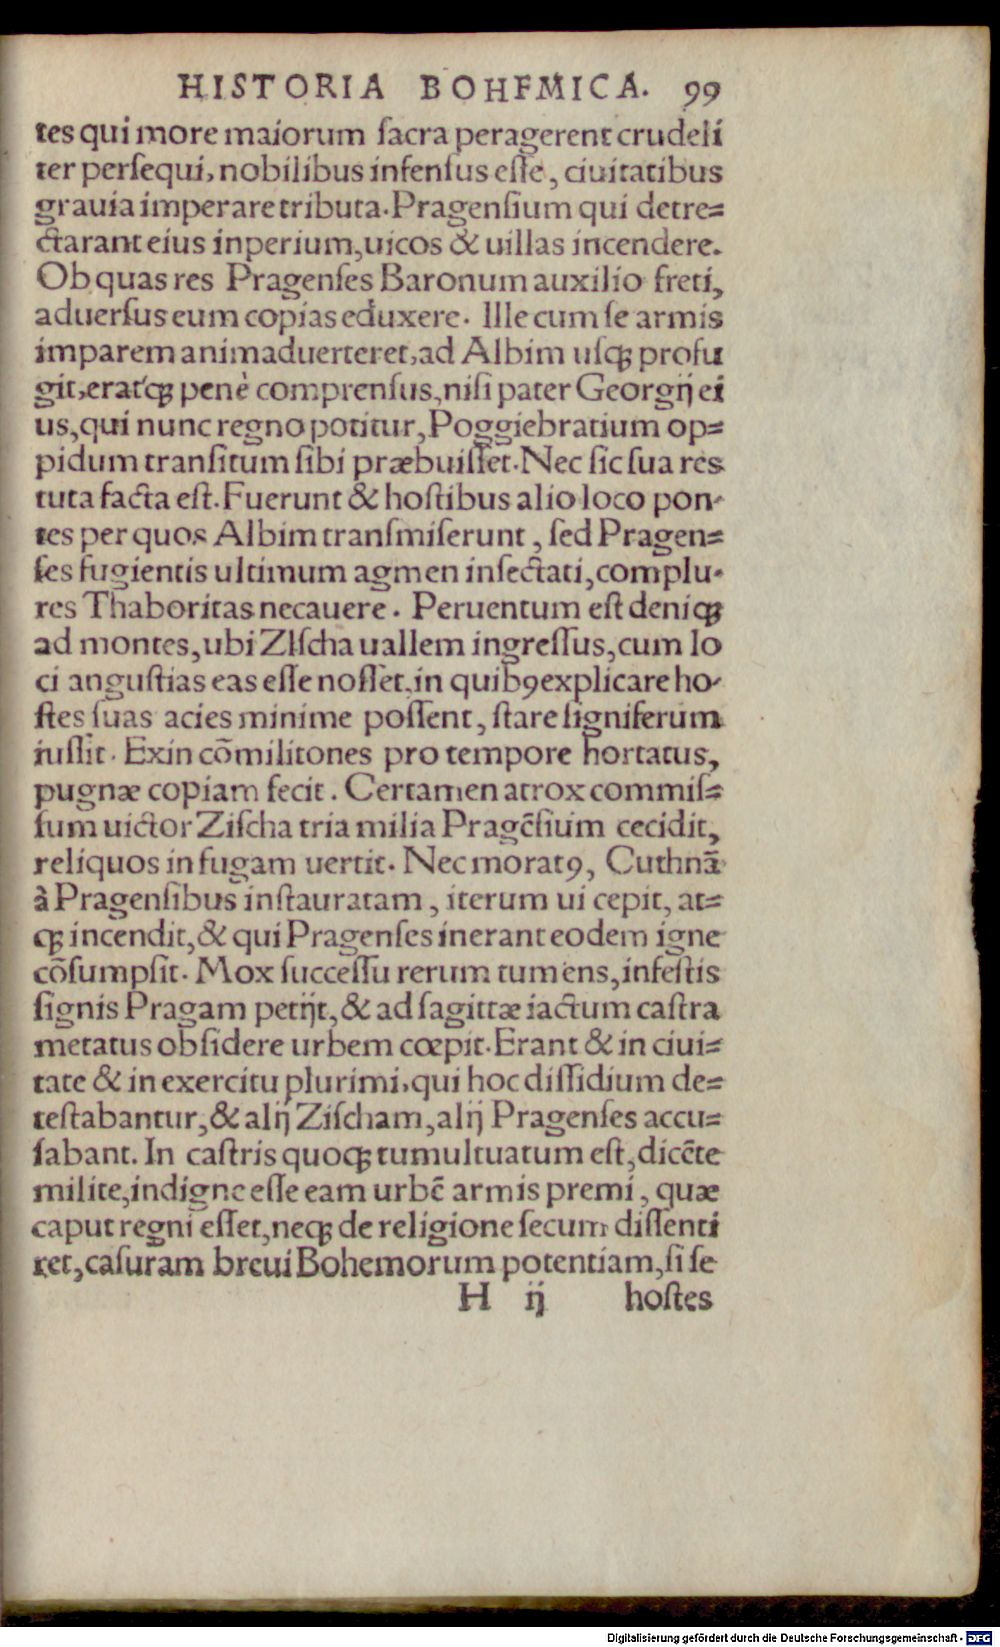 HISTORIA BOHEMICA. 99
tes qui more maiorum ſacra peragerent crudeli
ter perſequi, nobilibus infenſus eſſe, ciuitatibus
grauia imperare tributa. Pragenſium qui detre⸗
ctarant eius inperium, uicos & uillas incendere.
Ob quas res Pragenſes Baronum auxilio freti,
aduerſus eum copias eduxere. Ille cum ſe armis
imparem animaduerteret, ad Albim uſqꝫ profu
git, eratqꝫ penè comprenſus, niſi pater Georgij ei
us, qui nunc regno potitur, Poggiebratium op⸗
pidum tranſitum ſibi præbuiſſet. Nec ſic ſua res
tuta facta eſt. Fuerunt & hoſtibus alio loco pon-
tes per quos Albim tranſmiſerunt, ſed Pragen⸗
ſes fugientis ultimum agmen inſectati, complu-
res Thaboritas necauere. Peruentum eſt deniqꝫ
ad montes, ubi ZIſcha uallem ingreſſus, cum lo
ci anguſtias eas eſſe noſſet, in quibꝯ explicare ho-
ſtes ſuas acies minime poſſent, ſtare ſigniferum
iuſſit. Exin cõmilitones pro tempore hortatus,
pugnæ copiam fecit. Certamen atrox commiſ⸗
ſum uictor Ziſcha tria milia Pragẽſium cecidit,
reliquos in fugam uertit. Nec moratꝯ, Cuthnã
à Pragenſibus inſtauratam, iterum ui cepit, at⸗
qꝫ incendit, & qui Pragenſes inerant eodem igne
cõſumpſit. Mox ſucceſſu rerum tumens, infeſtis
ſignis Pragam petijt, & ad ſagittæ iactum caſtra
metatus obſidere urbem cœpit. Erant & in ciui⸗
tate & in exercitu plurimi, qui hoc diſſidium de⸗
teſtabantur, & alij Ziſcham, alij Pragenſes accu⸗
ſabant. In caſtris quoqꝫ tumultuatum eſt, dicẽte
milite, indigne eſſe eam urbẽ armis premi, quæ
caput regni eſſet, neqꝫ de religione ſecum diſſenti
ret, caſuram breui Bohemorum potentiam, ſi ſe
H ij hoſtes
Digitalisierung gefördert durch die Deutsche Forschungsgemeinschaft - DFG